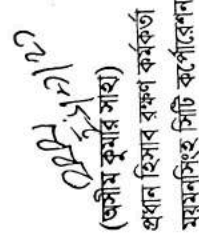 (অসীম কুমার সাহা)
প্রধান হিসাব রক্ষণ কর্মকর্তা
ময়মনসিংহ সিটি কর্পোরেশন